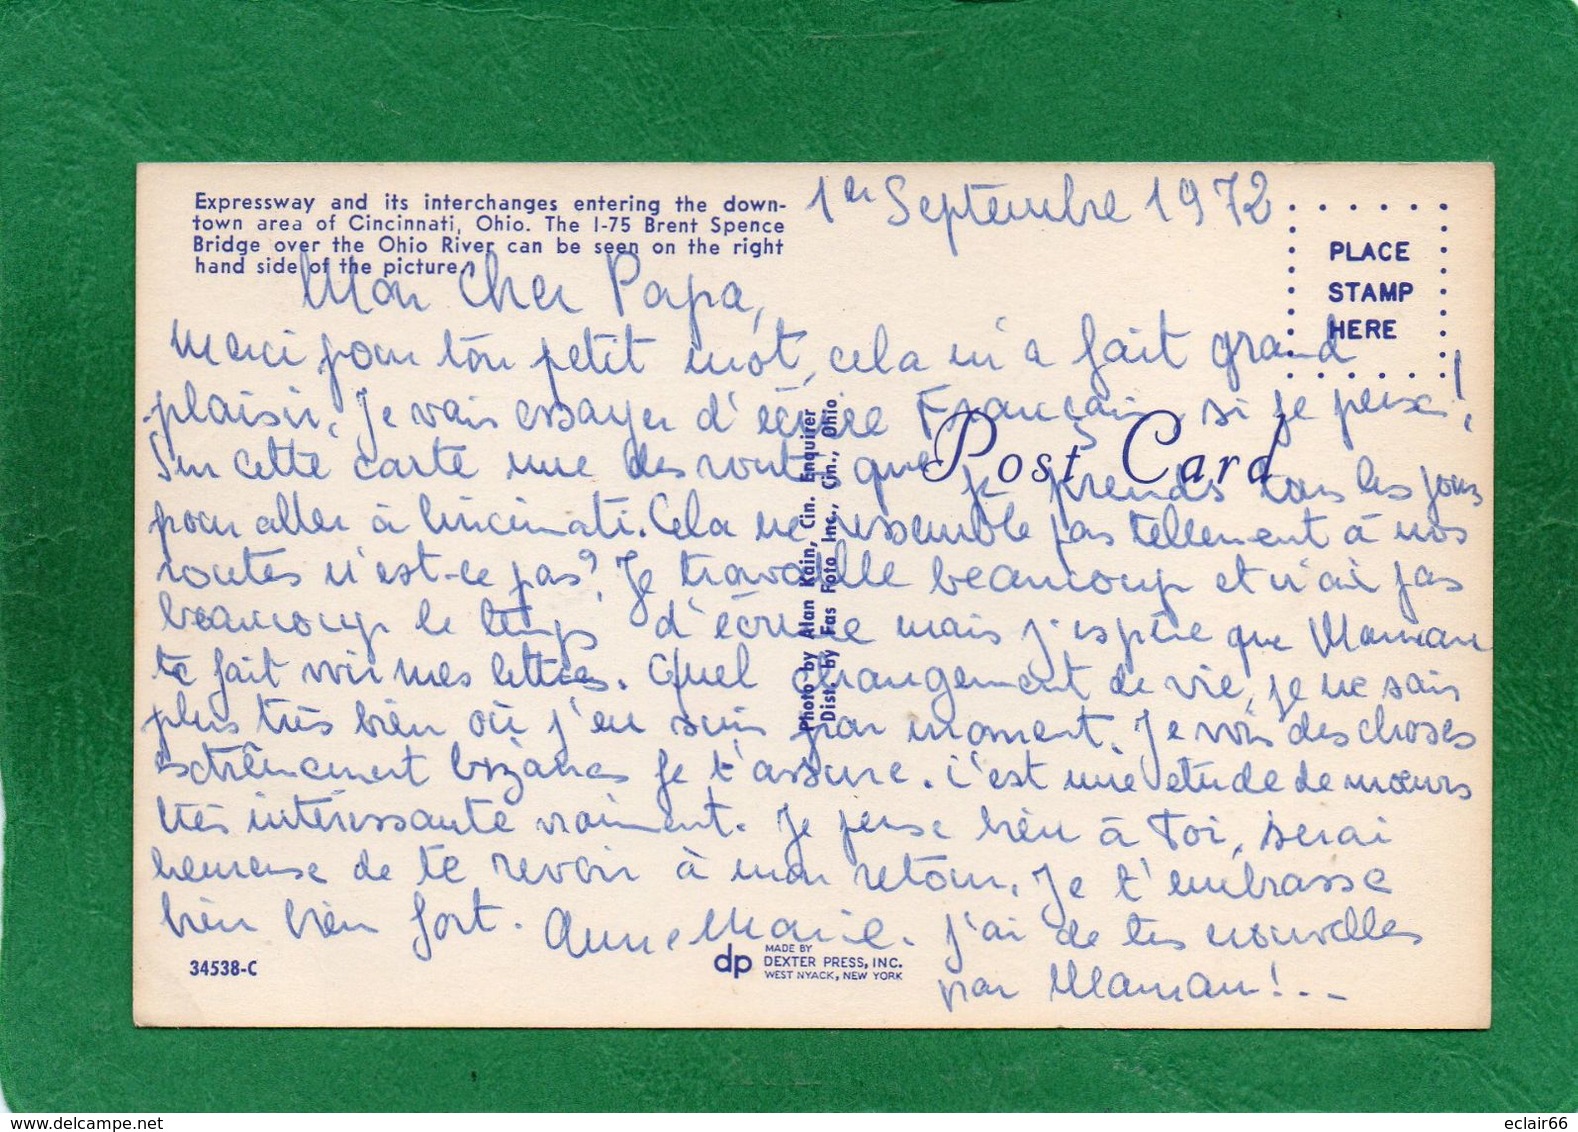 Expressway and its interchanges entering the down-
town area of Cincinnati, Ohio. The I-75 Brent Spence
Bridge over the Ohio River can be seen on the right
hand side of the picture.
1er Septembre 1972
PLACE
STAMP
HERE
Mon Cher Papa,
Merci pour ton petit mot, cela m'a fait grand
plaisir. Je vais essayer d'écrire Français si je peux!
Sur cette carte une des routes que je prends tous les jours
pour aller à Cincinnati. Cela ne ressemble pas tellement à nos
routes n'est-ce pas? Je travaille beaucoup et n'ai pas
beaucoup le temps d'écrire mais j'espère que Maman
te fait voir mes lettres. Quel changement de vie, je ne sais
plus très bien où j'en suis par moment. Je vois des choses
extrêmement bizarres je t'assure. C'est une étude de mœurs
très intéressante vraiment. Je pense bien à Toi, serai
heureuse de te revoir à mon retour. Je t'embrasse
bien bien fort. Anne Marie. J'ai de tes nouvelles
par Maman!..
Post Card
Photo by Alan Kain, Cin. Enquirer
Dist. by Fas Foto Inc., Cin., Ohio
34538-C
dp
MADE BY
DEXTER PRESS, INC.
WEST NYACK, NEW YORK
delcampe.net
eclair66